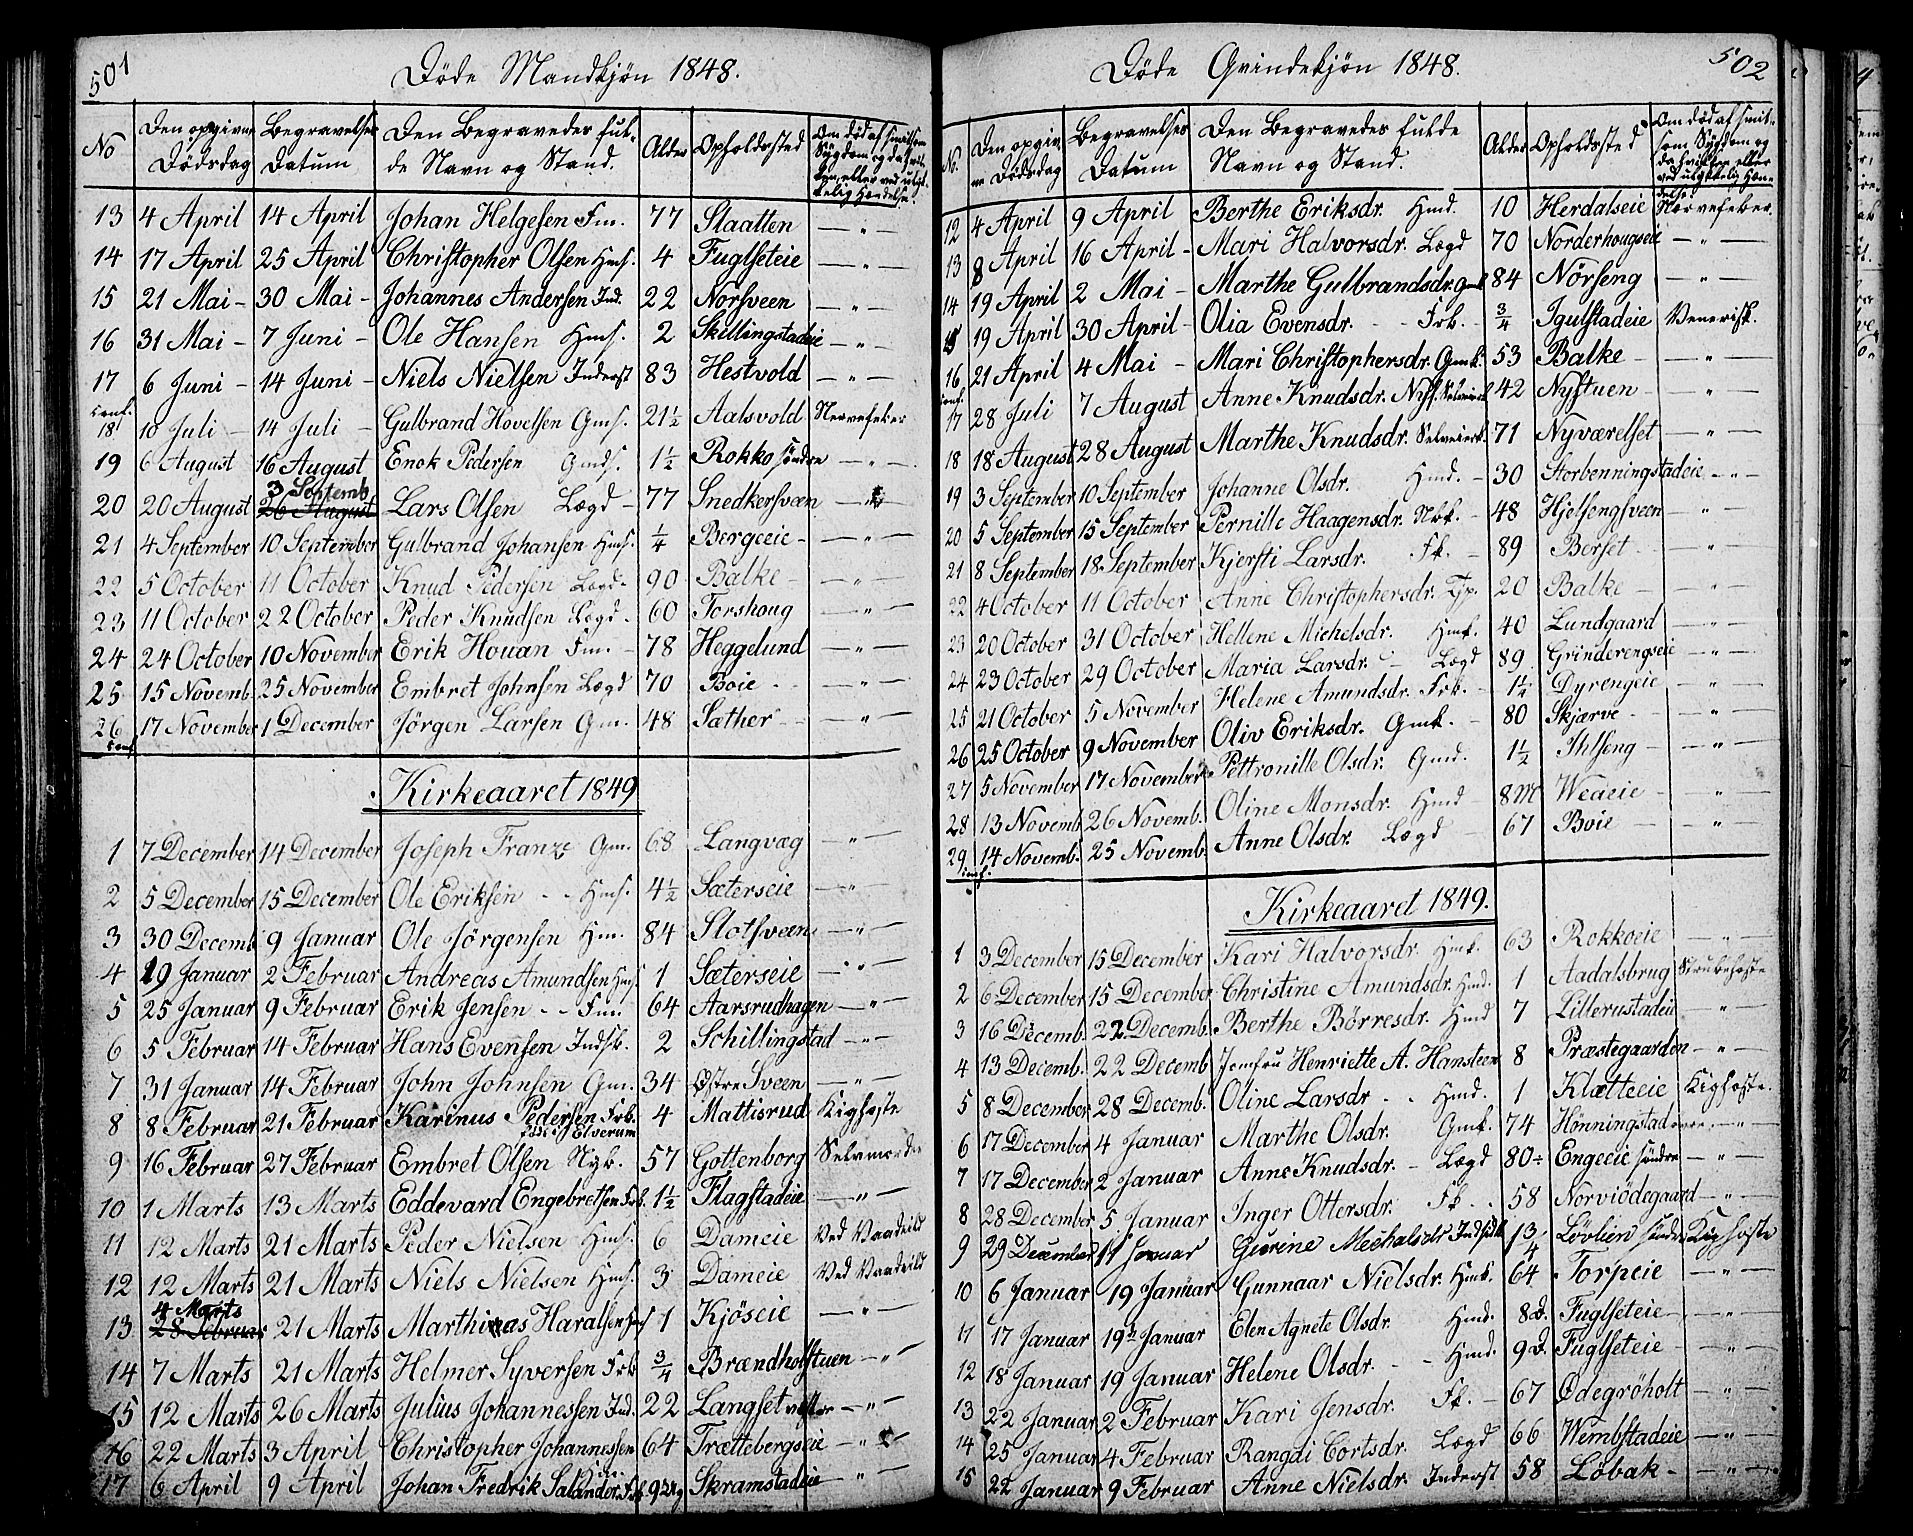 501
Döde Mandkjön 1848.
No
Den opgivne Dödsdag
Begravelses Datum
Den Begravedes fulde Navn og Stand.
Alder
Opholdssted
Om död af smitsom Sygdom og da hvilken, eller ved ulykkelig Hændelse.
13 4 April 14 April Johan Helgesen Fm. 77 Slaatten — „ —
14 17 April 25 April Christopher Olsen Hms. 4 Fuglseteie — „ —
15 21 Mai – 30 Mai – Johannes Andersen Ind. 22 Norsveen — „ —
16 31 Mai – 7 Juni – Ole Hansen Hms. 2 Skillingstadeie — „ —
17 6 Juni – 14 Juni – Niels Nielsen Inderst 83 Hestvold — „ —
conf.
18 10 Juli – 14 Juli – Gulbrand Hovelsen Gms. 21½ Aalsvold Nervefeber
19 6 August 16 August Enok Pedersen Gmds. 1½ Rokko söndre — „ —
3 Septemb.
20 20 August 26 August Lars Olsen Lægd – 77 Snedkersveen — „ —
21 4 September 10 September Gulbrand Johansen Hms. ¼ Bergeeie – — „ —
22 5 October 11 October Knud Pedersen Lægd. 90 Balke – — „ —
23 11 October 22 October Peder Knudsen Lægd. 60 Torshoug — „ —
24 24 October 10 November Erik Houan Fm. – 78 Heggelund — „ —
25 15 Novemb. 25 November Embret Johnsen Lægd 70 Boie — „ —
26 17 November 1 December Jörgen Larsen Gm. 48 Sæther — „ —
conf.
Kirkeaaret 1849
1 7 December 14 December Joseph Franze Gm. 68 Langvæg — „ —
2 5 December 15 December Ole Eriksen – – Hms. 4½ Sæterseie — „ —
3 30 Decemb. 9 Januar Ole Jörgensen Hm. 84 Slotsveen — „ —
4 19 Januar 2 Februar Andreas Amundsen Hms. 1 Sæterseie — „ —
5 25 Januar 9 Februar Erik Jensen – – Fm. 64 Aarsrudhagen — „ —
6 5 Februar 14 Februar Hans Evensen Indsk. 2 Schillingstad — „ —
7 31 Januar 14 Februar John Johnsen Gm. 34 Østre Sveen — „ —
8 8 Februar 21 Februar Karinus Pedersen Frk. 4 Mattisrud Kighoste
föd i Elverum
9 16 Februar 27 Februar Embret Olsen Nyb. 57 Gottenborg Selvmorder
10 1 Marts 13 Marts Eddevard Engebretsen Frk. 1½ Flagstadeie — „ —
11 12 Marts 21 Marts Peder Nielsen Hms. 6 Dameie Ved Vaadeild
12 12 Marts 21 Marts Niels Nielsen Hms. 3 Dameie Ved Vaadeild
4 Marts
13 28 Februar 21 Marts Marthinas Haralsen Hms 1 Kjöseie — „ —
14 7 Marts 21 Marts Helmer Syversen Frk ¾ Brændholstuen — „ —
15 12 Marts 26 Marts Julius Johannessen Ind. 22 Langset vestre — „ —
16 22 Marts 3 April Christopher Johannessen 64 Trættebergseie — „ —
17 6 April 9 April Johan Fredrik Salander. Frk 9 Skramstadeie — „ —
502
Döde Qvindekjön 1848.
No.
Den opgivne Dödsdag
Begravelses Datum
Den Begravedes fulde Navn og Stand.
Alder
Opholdssted
Om död af smitsom Sygdom og da hvilken eller ved ulykkelig Hændelse.
12 4 April 9 April Berthe Eriksdr. Hmd. 10 Herdalseie Nervefeber.
13 8 April 16 April – Mari Halvorsdr. Lægd 70 Norderhougseie — „ —
14 19 April 2 Mai – Marthe Gulbrandsdr. Gmk 84 Nörseng — „ —
15 19 April 30 April – Olia Evensdr. – – Frk. – ¾ Igulstadeie Venerisk.
16 21 April 4 Mai – Mari Christophersdr. Gmk. 53 Balke – — „ —
conf.
17 28 Juli 7 August Anne Knudsdr. Nyss. Selveierk 42 Nystuen – — „ —
18 18 August 28 August Marthe Knudsdr. Selveierk. 71 Nyværelset — „ —
19 3 September 10 September Johanne Olsdr. Hmd. – 30 Storbenningstadeie — „ —
20 5 September 15 September Pernille Haagensdr. Nrk. – 48 Hjelsengsveen — „ —
21 8 September 18 September Kjersti Larsdr. Fk. – 89 Berset — „ —
22 4 October 11 October Anne Christophersdr. Tjp. 20 Balke – — „ —
23 20 October 31 October Hellene Michelsdr. Hmk. 40 Lundgaard — „ —
24 23 October 29 October Maria Larsdr. – Lægd 89 Grinderengseie — „ —
25 21 October 5 November Helene Amundsdr. Frk. – 1¼ Dyrengeie — „ —
26 25 October 9 November Oliv Eriksdr. Gmk. – 80 Skjærve – — „ —
27 5 November 17 November Pettronille Olsdr. Gmd. 1½ Ihlseng — „ —
28 13 Novemb. 26 Novemb. Oline Monsdr. Hmd – 8 M Weaeie – — „ —
29. 14 Novemb. 25 Novemb. Anne Olsdr. Lægd – 67 Boie – — „ —
conf.
Kirkeaaret 1849.
1 3 December 15 December Kari Halvorsdr. Hmk. 63 Rokkoeie — „ —
2 6 December 15 December Christine Amundsdr. Hmd. 1 Aadalsbrug Strubehoste
3 16 Decemb. 22. Decemb. Berthe Börresdr. Hmd 7 Lillerustadeie — „ —
4 13 Decemb. 22 Decemb Jomfru Henriette A. Hansteen 8 Præstegaarden — „ —
5 8 December 28 Decemb. Oline Larsdr – – Hmd. 1 Klætteeie Kighoste.
6 17 December 4 Januar Marthe Olsdr. Gmk. 74 Hönningstad övre. — „ —
7 17 December 2 Januar Anne Knudsdr. – Lægd 80 ÷ Engeeie söndre — „ —
8 28 December 5. Januar Inger Ottersdr. Fk – . 58 Norviödegaard — „ —
9 29 December 11 Januar Gurine Mechalsdr Indsidd 13/4 Lövlien söndre Kighoste
10 6 Januar 19 Januar Gunnaar Nielsdr. Hmk. 64 Torpeie — „ —
11 17 Januar 19 Januar Elen Agnete Olsdr Hmd. 8 D. Fuglseteie — „ —
12 18 Januar 19 Januar Helene Olsdr. – – Hmd. 9 D. Fuglseteie – — „ —
13 22 Januar 2 Februar Kari Jensdr. Fk. – 67 Ödegröholt — „ —
14 25 Januar 4 Februar Rangdi Cortsdr. Lægd 66 Wembstadeie — „ —
15 22 Januar 9 Februar Anne Nielsdr. Inderst 58 Löbak – — „ —